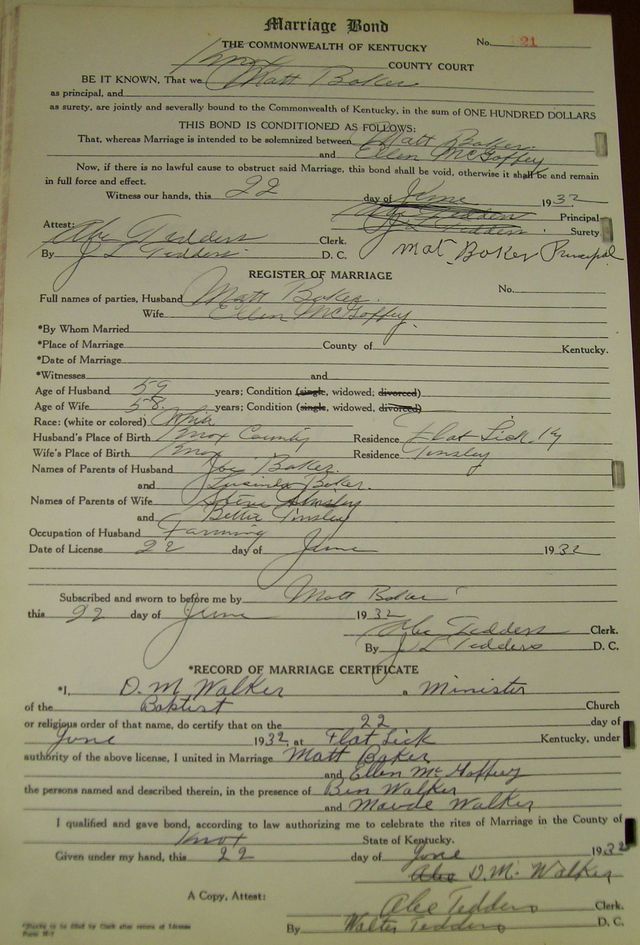 Marriage Bond
THE COMMONWEALTH OF KENTUCKY No. 21
Knox COUNTY COURT
BE IT KNOWN, That we Matt Baker
as principal, and
as surety, are jointly and severally bound to the Commonwealth of Kentucky, in the sum of ONE HUNDRED DOLLARS
THIS BOND IS CONDITIONED AS FOLLOWS:
That, whereas Marriage is intended to be solemnized between Matt Baker
and Ellen McGoffey
Now, if there is no lawful cause to obstruct said Marriage, this bond shall be void, otherwise it shall be and remain
in full force and effect.
Witness our hands, this 22 day of June 1932
Principal
Surety
Attest:
Abe Tedders Clerk.
By J L Tedders D. C.
Mat Baker Principal
REGISTER OF MARRIAGE
No.
Full names of parties, Husband Matt Baker.
Wife Ellen McGoffey.
*By Whom Married
*Place of Marriage County of Kentucky.
*Date of Marriage
*Witnesses and
Age of Husband 59 years; Condition (single, widowed; divorced)
Age of Wife 58. years; Condition (single, widowed, divorced)
Race: (white or colored) White
Husband's Place of Birth Knox County Residence Flat Lick. Ky
Wife's Place of Birth Knox Residence Tinsley
Names of Parents of Husband Baker.
and Lucinda Baker.
Names of Parents of Wife Steve Tinsley
and Bettie Tinsley
Occupation of Husband Farming
Date of License 22 day of June 1932
Subscribed and sworn to before me by Matt Baker
this 22 day of June 1932
Abe Tedders Clerk.
By J L Tedders D. C.
*RECORD OF MARRIAGE CERTIFICATE
*I, D. M. Walker a Minister
of the Baptist Church
or religious order of that name, do certify that on the 22 day of
June 1932, at Flat Lick Kentucky, under
authority of the above license, I united in Marriage Matt Baker
and Ellen McGoffey
the persons named and described therein, in the presence of Ben Walker
and Maude Walker
I qualified and gave bond, according to law authorizing me to celebrate the rites of Marriage in the County of
Knox State of Kentucky.
Given under my hand, this 22 day of June 1932
D. M. Walker
A Copy, Attest: Abe Tedders Clerk.
By Walter Tedders D. C.